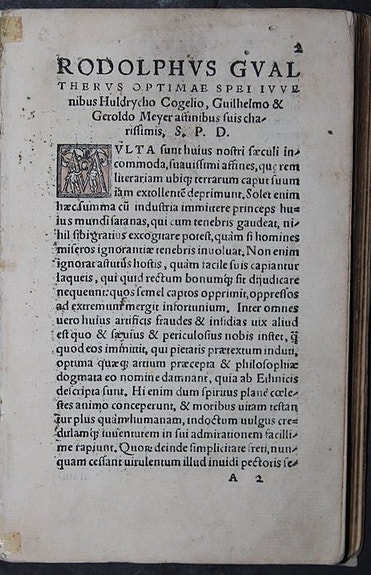 2
RODOLPHVS GVAL
THERVS OPTIMAE SPEI IVVE
nibus Huldrycho Cogelio, Guilhelmo &
Geroldo Meyer affinibus suis cha-
rissimis, S. P. D.
MVLTA sunt huius nostri sæculi in-
commoda, suauissimi affines, quę rem
literariam ubiqꝫ terrarum caput suum
iam extollentẽ deprimunt. Solet enim
hæc summa cũ industria immittere princeps hu-
ius mundi satanas, qui cum tenebris gaudeat, ni-
hil sibi gratius excogitare potest, quàm si homines
miseros ignorantiæ tenebris inuoluat. Non enim
ignorat astutus hostis, quàm facile suis capiantur
laqueis, qui quid rectum bonumqꝫ sit dijudicare
nequeunt: quos semel captos opprimit, oppressos
ad extremum mergit infortunium. Inter omnes
uero huius artificis fraudes & insidias uix aliud
est quo & sæuius & periculosius nobis instet, ꝗ̃
quod eos immittit, qui pietatis prætextum induti,
optima quæqꝫ artium præcepta & philosophiæ
dogmata eo nomine damnant, quia ab Ethnicis
descripta sunt. Hi enim dum spiritus planè cœle-
stes animo conceperunt, & moribus uitam testan
tur plus quàm humanam, indoctum uulgus cre-
dulamqꝫ iuuentutem in sui admirationem facilli-
me rapiunt. Quorũ deinde simplicitate freti, nun-
quam cessant uirulentum illud inuidi pectoris se-
A 2